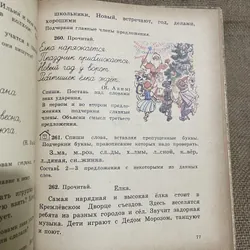 школьники, Новый, встречают, год, делами,
хорошими
Подчеркни главные члены предложения.
260. Прочитай.
Ёлка наряжается —
Праздник приближается.
Новый год у ворот,
Ребятишек ёлка ждёт.
(Я. Аким)
Спиши. Поставь над словами
знак ударения.
В первом и во втором
предложениях подчеркни
главные члены предложения.
261. Спиши слова, вставляя пропущенные буквы.
Подчеркни буквы, правописание которых надо проверять.
Составь 2—3 предложения с некоторыми из данных
слов.
262. Прочитай. Ёлка.
Самая нарядная и высокая ёлка стоит в
Кремлёвском Дворце съездов. Здесь веселятся
ребята из разных городов и сёл. Звучит задорная
музыка. Дети играют с Дедом Морозом, танцуют
и поют.
77